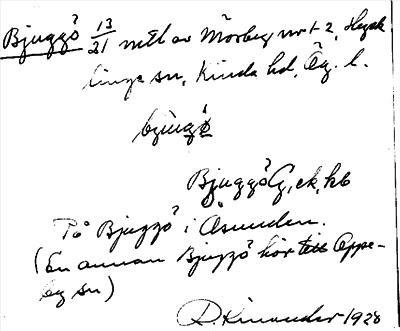 Bjuggö 13/21 mtl av Mörbeg nr 1-2, Hyck
linge sn, Kinda hd, Ög. l.
bjùgö
Bjuggö G, ek, kb
På Bjuggö i Åsunden.
(En annan Bjuggö hör till Oppe-
by sn)
R. Kinander 1928